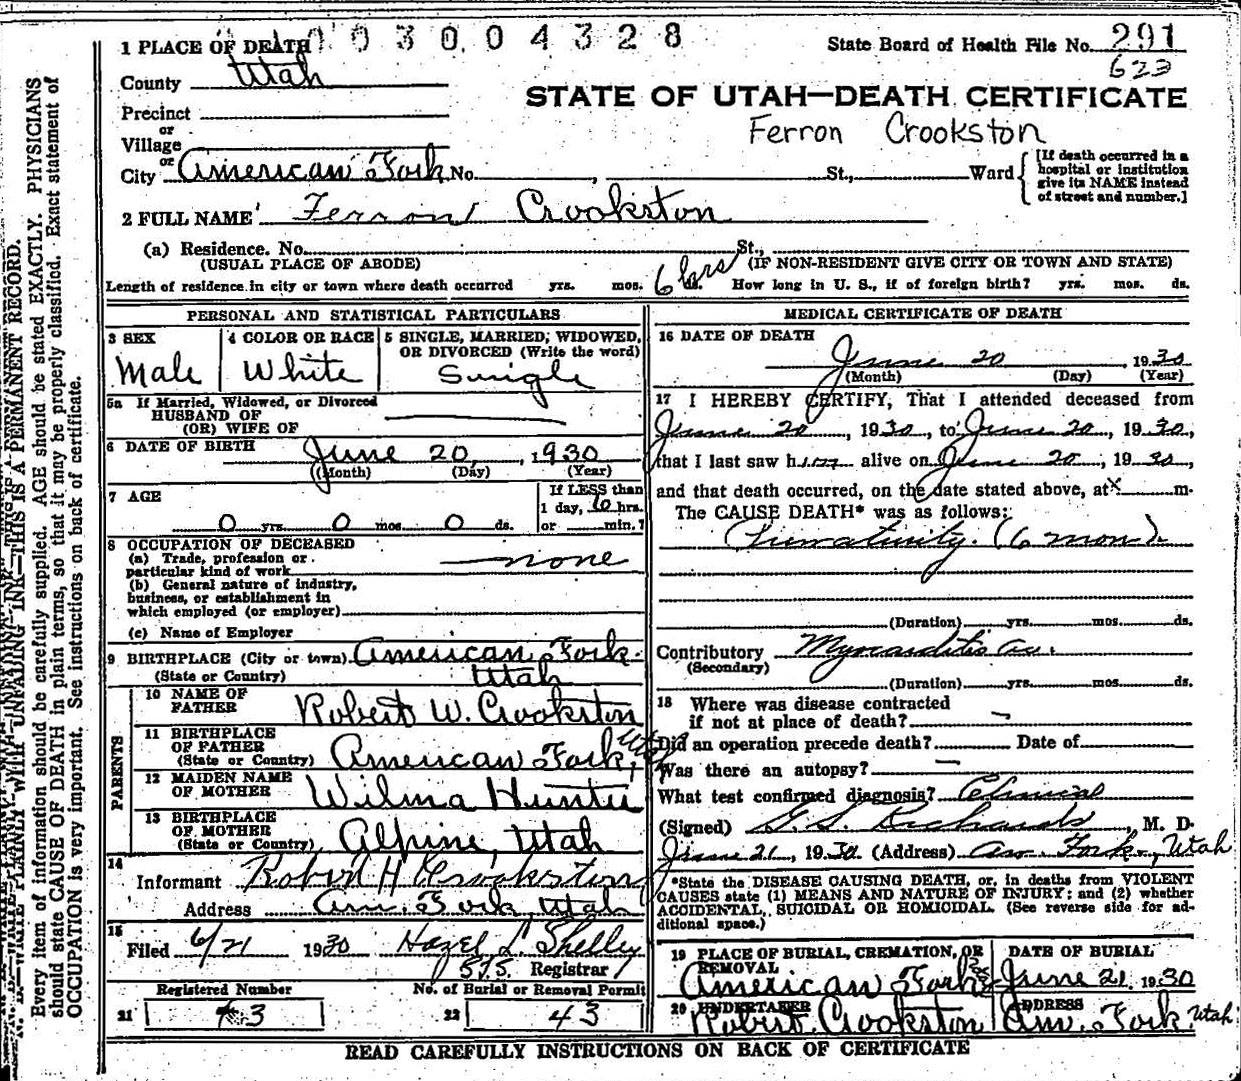 1 PLACE OF DEATH
030.04328
State Board of Health File No. 291
623
County Utah
STATE OF UTAH—DEATH CERTIFICATE
Precinct
or
Village
Ferron Crookston
or
City American Fork No. , St., Ward
[If death occurred in a
hospital or institution
give its NAME instead
of street and number.]
2 FULL NAME Ferron Crookston
(a) Residence. No. St.,
(USUAL PLACE OF ABODE) (IF NON-RESIDENT GIVE CITY OR TOWN AND STATE)
Length of residence in city or town where death occurred yrs. mos. 6 hrs ds. How long in U. S., if of foreign birth? yrs. mos. ds.
PERSONAL AND STATISTICAL PARTICULARS
3 SEX 4 COLOR OR RACE 5 SINGLE, MARRIED, WIDOWED,
OR DIVORCED (Write the word)
Male White Single
5a If Married, Widowed, or Divorced
HUSBAND OF
(OR) WIFE OF
6 DATE OF BIRTH June 20, 1930
(Month) (Day) (Year)
7 AGE
If LESS than
1 day, 6 hrs.
0 yrs. 0 mos. 0 ds. or min.?
8 OCCUPATION OF DECEASED
(a) Trade, profession or
particular kind of work none
(b) General nature of industry,
business, or establishment in
which employed (or employer)
(c) Name of Employer
9 BIRTHPLACE (City or town) American Fork
(State or Country) Utah
PARENTS
10 NAME OF
FATHER Robert W. Crookston
11 BIRTHPLACE
OF FATHER
(State or Country) American Fork, Utah
12 MAIDEN NAME
OF MOTHER Wilma Hunter
13 BIRTHPLACE
OF MOTHER
(State or Country) Alpine, Utah
14
Informant Robert H Crookston
Address Am. Fork, Utah
15
Filed 6/21 1930 Hazel L. Shelley
515. Registrar
Registered Number No. of Burial or Removal Permit
21 43 22 43
MEDICAL CERTIFICATE OF DEATH
16 DATE OF DEATH
June 20 1930
(Month) (Day) (Year)
17 I HEREBY CERTIFY, That I attended deceased from
June 20, 1930, to June 20, 1930,
that I last saw him alive on June 20, 1930,
and that death occurred, on the date stated above, at x m.
The CAUSE DEATH* was as follows:
(6 mon).
(Duration) yrs. mos. ds.
Contributory Myocarditis Ac.
(Secondary)
(Duration) yrs. mos. ds.
18 Where was disease contracted
if not at place of death? –
Did an operation precede death? Date of
Was there an autopsy? –
What test confirmed diagnosis? Clinical
(Signed) G. S. Richards, M. D.
June 21, 1930 (Address) Am. Fork, Utah
*State the DISEASE CAUSING DEATH, or, in deaths from VIOLENT
CAUSES state (1) MEANS AND NATURE OF INJURY; and (2) whether
ACCIDENTAL, SUICIDAL OR HOMICIDAL. (See reverse side for ad-
ditional space.)
19 PLACE OF BURIAL, CREMATION, OR
REMOVAL DATE OF BURIAL
American Fork June 21 1930
20 UNDERTAKER ADDRESS
Robert Crookston Am. Fork, Utah
READ CAREFULLY INSTRUCTIONS ON BACK OF CERTIFICATE
WRITE PLAINLY WITH UNFADING INK—THIS IS A PERMANENT RECORD.
Every item of information should be carefully supplied. AGE should be stated EXACTLY. PHYSICIANS
should state CAUSE OF DEATH in plain terms, so that it may be properly classified. Exact statement of
OCCUPATION is very important. See instructions on back of certificate.